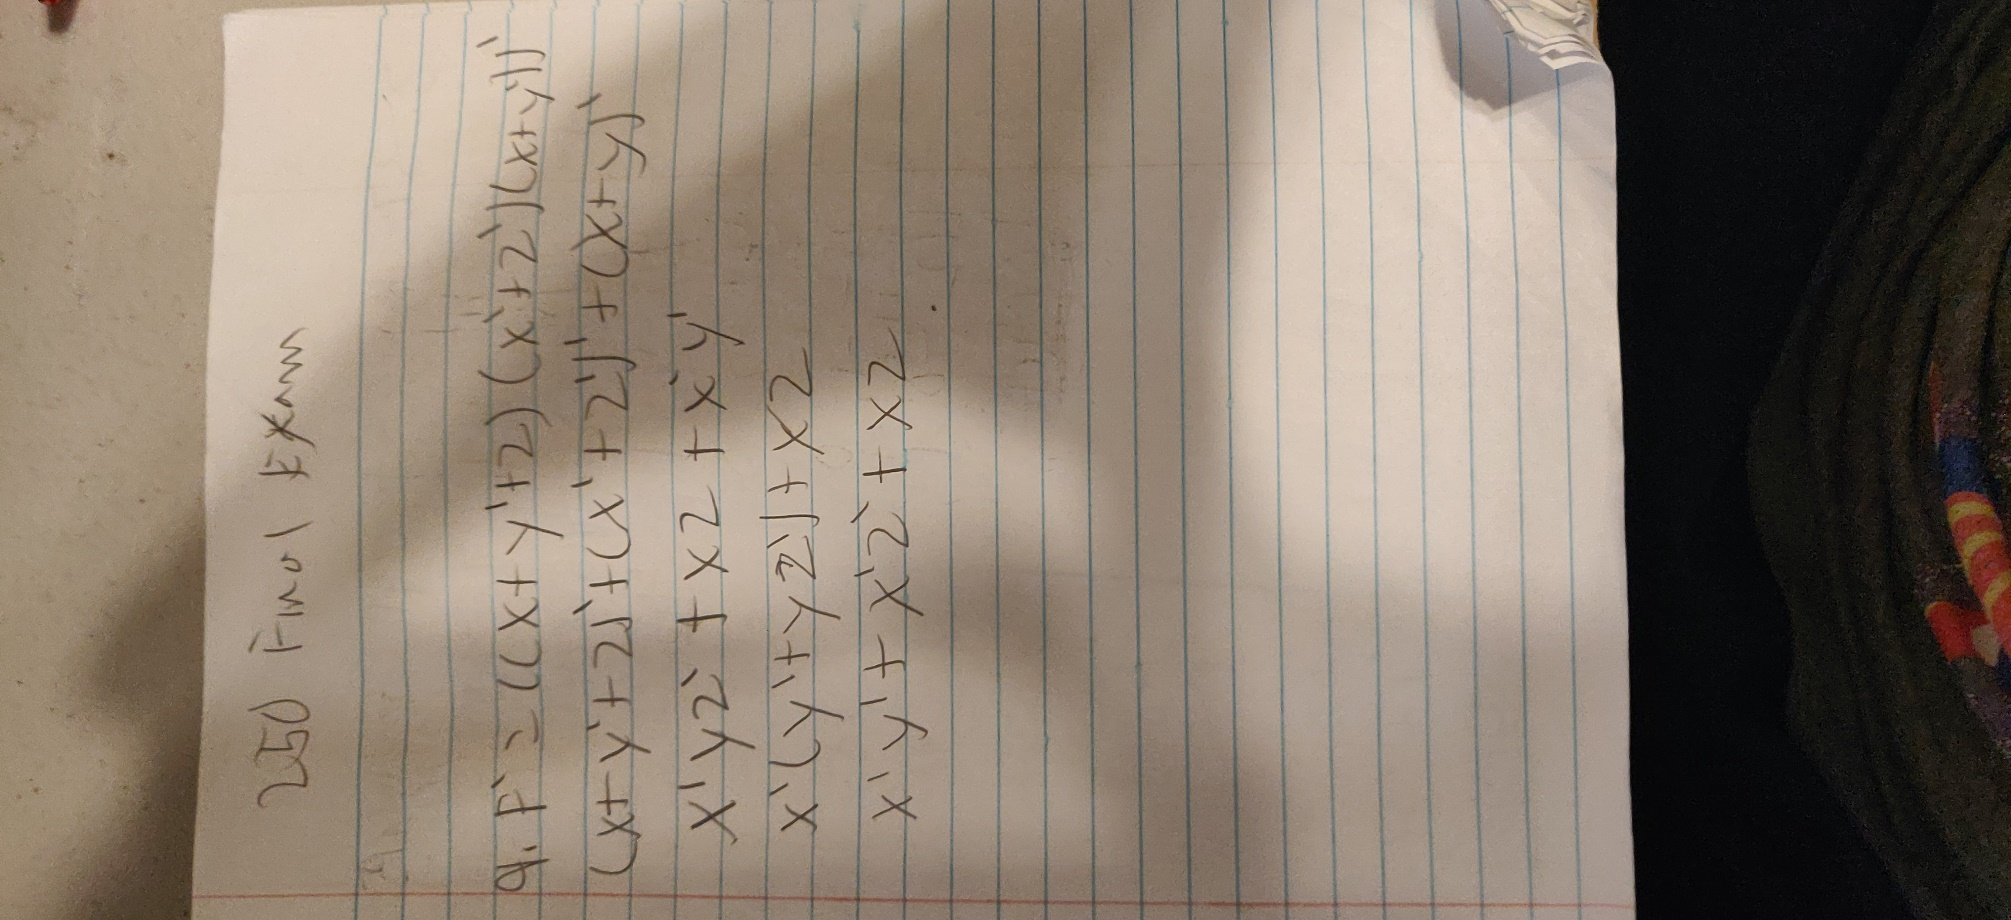 250 Final Exam
9. F' = ((x+y'+z)(x'+z')(x+y))'
(x+y'+z)'+(x'+z')'+(x+y)'
x'yz'+xz+x'y'
x'(y'+yz')+xz
x'y'+x'z'+xz